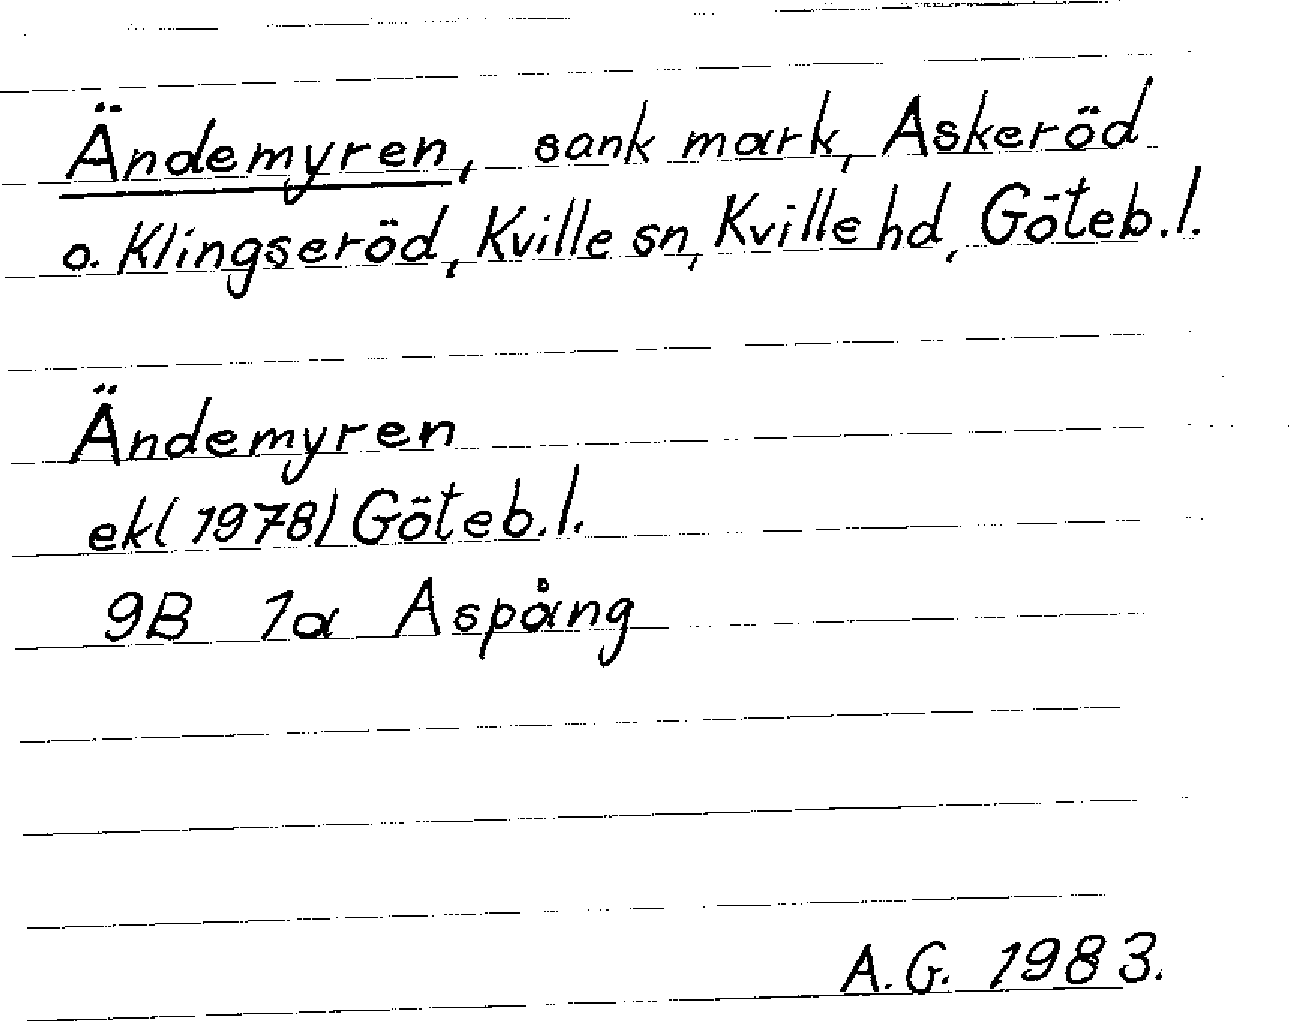 Ändemyren, sank mark, Askeröd
o. Klingseröd, Kville sn, Kville hd, Göteb.l.
Ändemyren
ekl (1978) Göteb.l.
9B 1a Aspång
A.G. 1983.